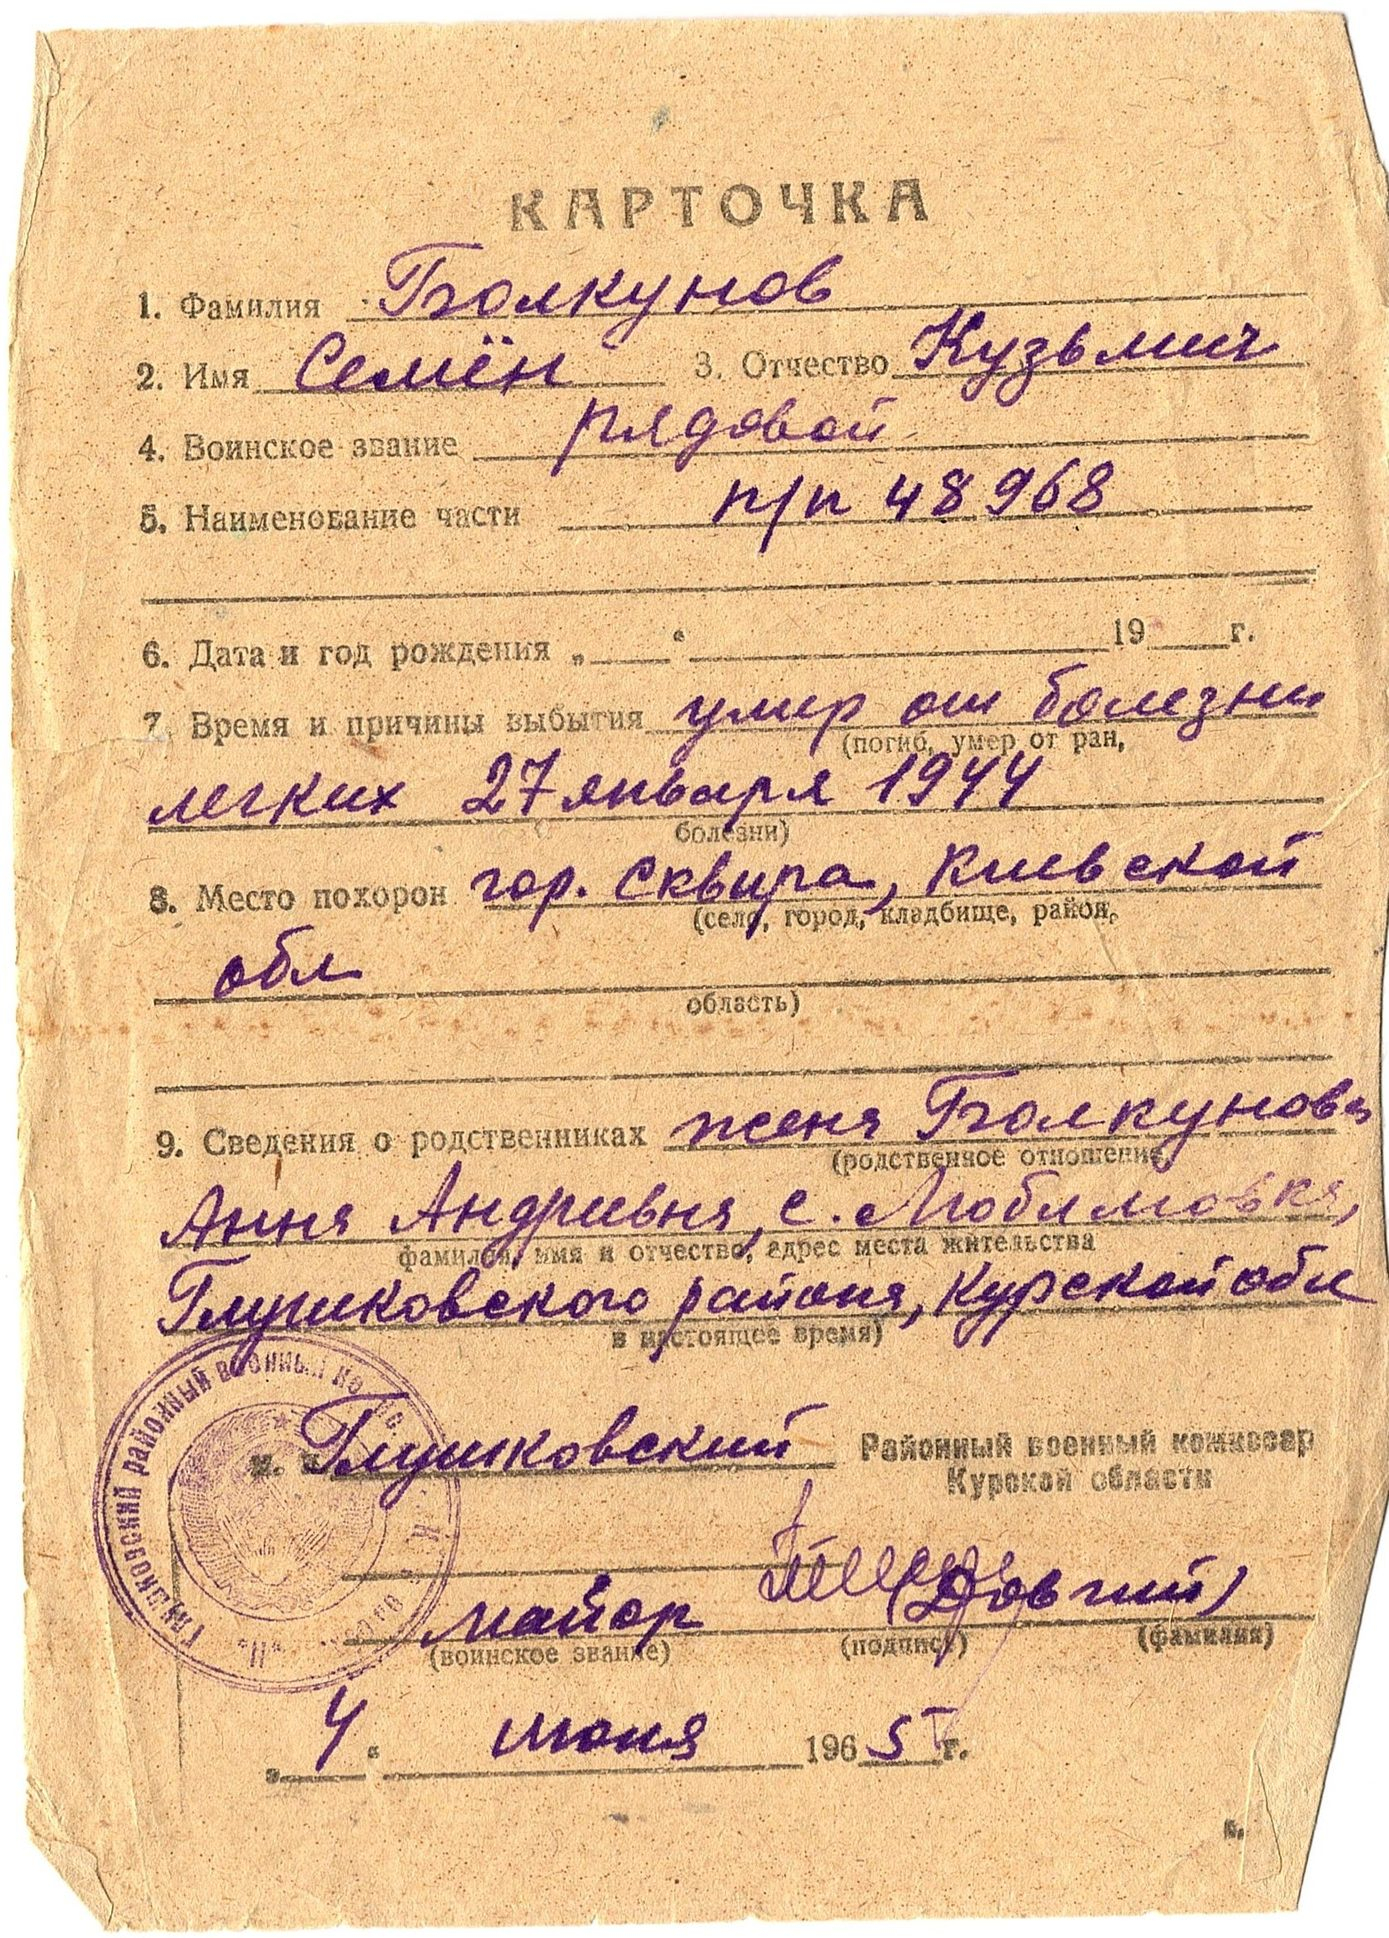 КАРТОЧКА
1. Фамилия Болкунов
2. Имя Семён 3. Отчество Кузьмич
4. Воинское звание рядовой
5. Наименование части п/п 48968
6. Дата и год рождения „ “ 19 г.
7. Время и причины выбытия умер от болезни
(погиб, умер от ран,
легких 27 января 1944
болезни)
8. Место похорон гор. Сквира, Киевской
(село, город, кладбище, район,
обл
область)
9. Сведения о родственниках жена Болкунова
(родственное отношение,
Анна Андриевна, с. Любимовка,
фамилия, имя и отчество, адрес места жительства
Глушковского района, Курской обл
в настоящее время)
Глушковский Районный военный комиссар
Курской области
майор (Довгий)
(воинское звание) (подпись) (фамилия)
„ 4 “ июня 1965 г.
Глушковский районный военный